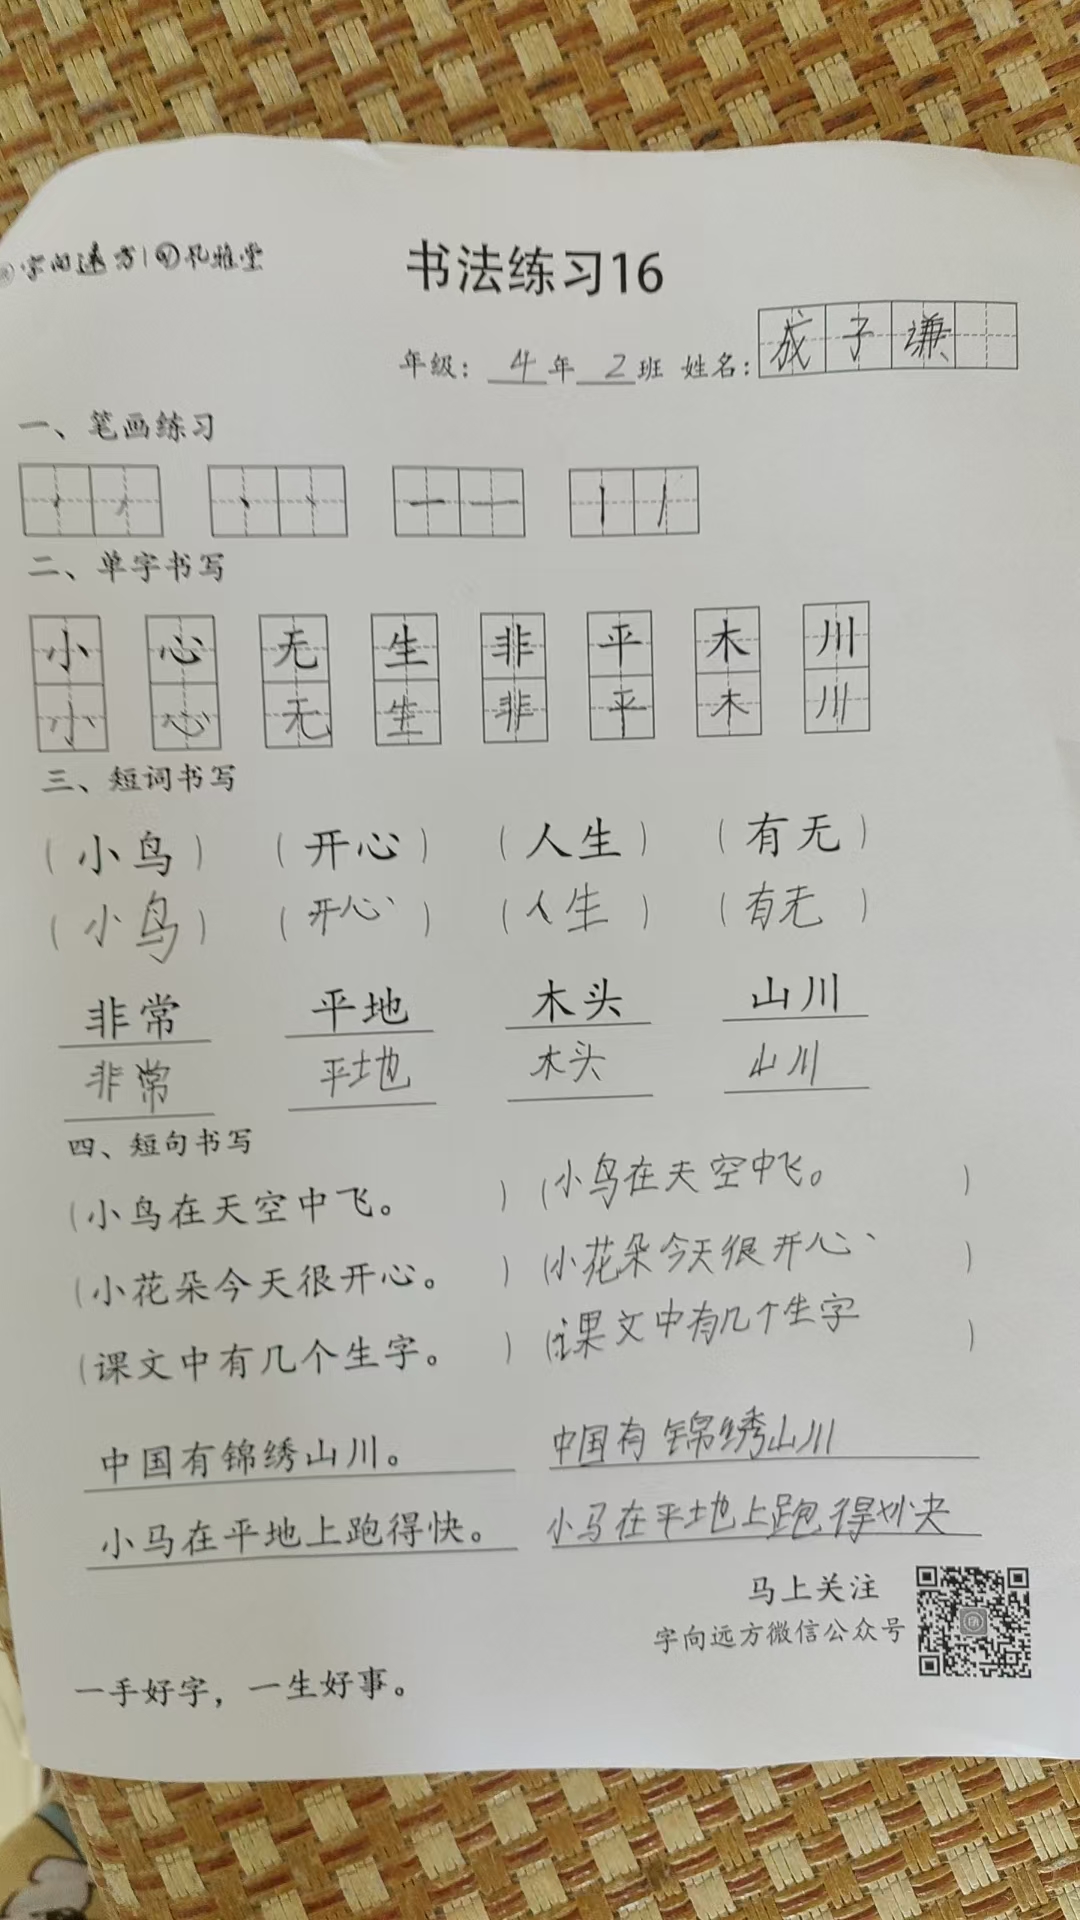 字向远方 孔雅堂
书法练习16
年级：4年2班 姓名：成子谦
一、笔画练习
二、单字书写
小 心 无 生 非 平 木 川
小 心 无 生 非 平 木 川
三、短词书写
（小鸟） （开心） （人生） （有无）
（小鸟） （开心） （人生） （有无）
非常 平地 木头 山川
非常 平地 木头 山川
四、短句书写
（小鸟在天空中飞。） （小鸟在天空中飞。）
（小花朵今天很开心。） （小花朵今天很开心）
（课文中有几个生字。） （课文中有几个生字）
中国有锦绣山川。 中国有锦绣山川
小马在平地上跑得快。 小马在平地上跑得快
马上关注
字向远方微信公众号
一手好字，一生好事。